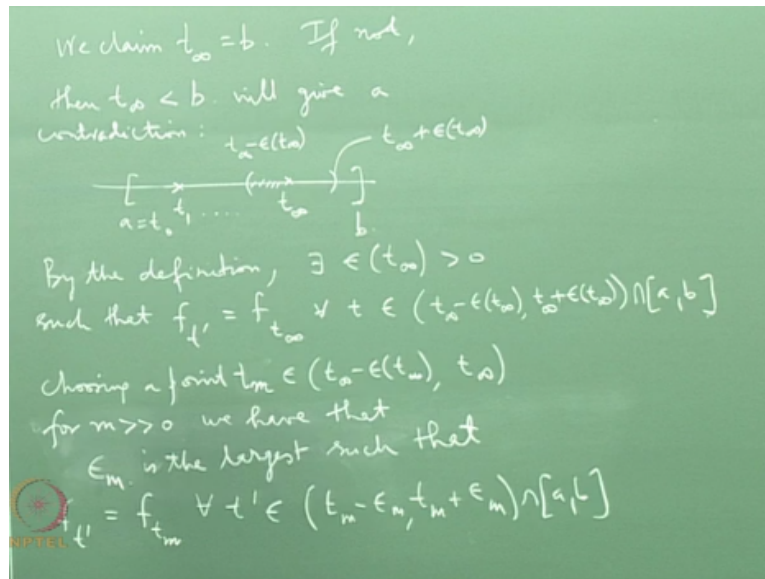 We claim t_∞ = b. If not,
then t_∞ < b will give a
contradiction:
t_∞-ϵ(t_∞) t_∞+ϵ(t_∞)
[ ( ) ]
a=t_0 t_1 .... t_∞ b
By the definition, ∃ ϵ(t_∞) > 0
such that f_t' = f_t_∞ ∀ t ∈ (t_∞-ϵ(t_∞), t_∞+ϵ(t_∞)) ∩ [a,b]
choosing a point t_m ∈ (t_∞-ϵ(t_∞), t_∞)
for m>>0 we have that
ϵ_m is the largest such that
f_t' = f_t_m ∀ t' ∈ (t_m-ϵ_m, t_m+ϵ_m) ∩ [a,b]
NPTEL